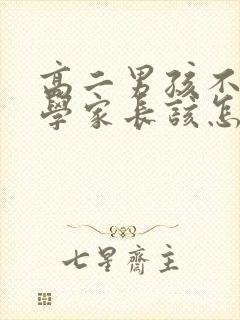 高二男孩不
學家長該怎
七星齋主